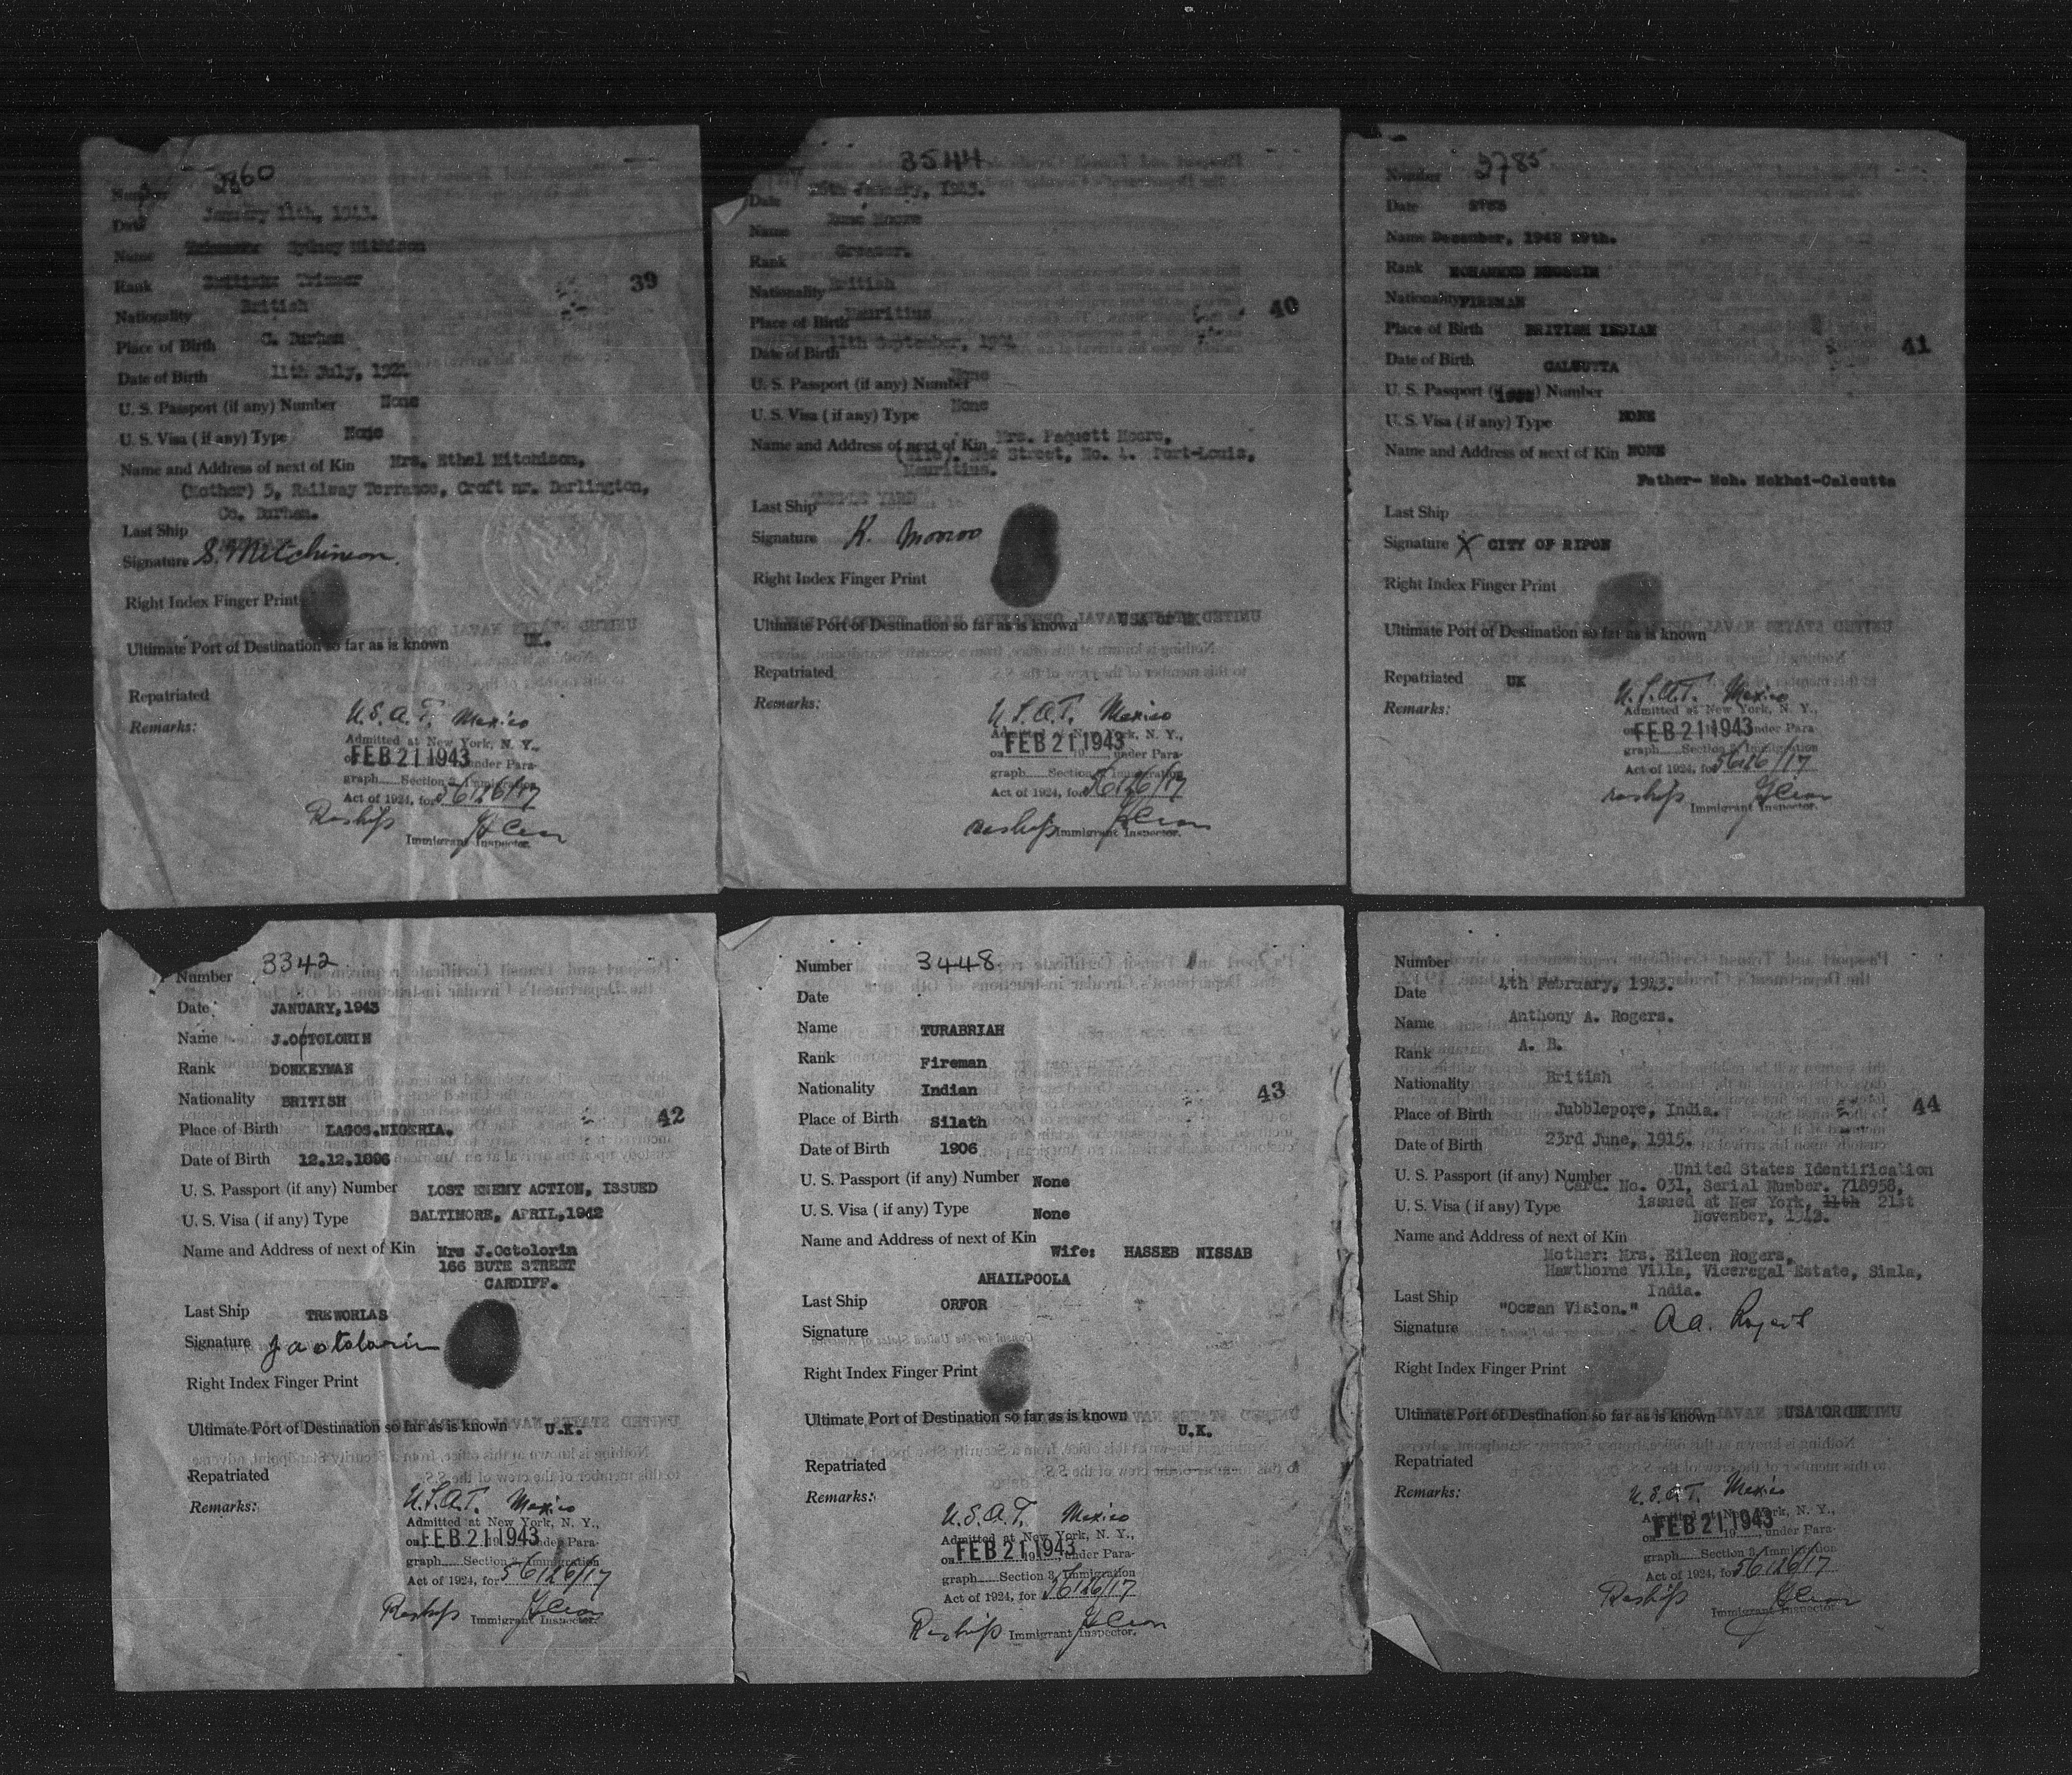 3860
Number
Date January 11th, 1943.
Name Sydney Mitchison
Rank Trimmer
39
Nationality British
Place of Birth C. Durham
Date of Birth 11th July, 1921.
U. S. Passport (if any) Number None
U. S. Visa ( if any) Type None
Name and Address of next of Kin Mrs. Ethel Mitchison,
(Mother) 5, Railway Terrance, Croft nr. Darlington,
Co. Durham.
Last Ship
Signature S. Mitchinson.
Right Index Finger Print
Ultimate Port of Destination so far as is known UK.
Repatriated
Remarks:
U.S.A.T. Mexico
Admitted at New York, N. Y.,
on FEB 21 1943 under Para-
graph Section 3 Immigration
Act of 1924, for 56126/17
Reship
Immigrant Inspector.
3544
Date January, 1943.
Name Moore
Rank Greaser.
Nationality British
40
Place of Birth Mauritius
Date of Birth 11th September, 1904
U. S. Passport (if any) Number None
U. S. Visa ( if any) Type None
Name and Address of next of Kin Mrs. Paquett Moore,
Street, No. 4. Port-Louis,
Mauritius.
Last Ship
Signature
Right Index Finger Print
Ultimate Port of Destination so far as is known USA or UK
Repatriated
Remarks:
U.S.A.T. Mexico
Admitted at New York, N. Y.,
on FEB 21 1943 19 under Para-
graph Section 3 Immigration
Act of 1924, for 56126/17
reship Immigrant Inspector.
Number 3785
Date
Name December, 1942 29th.
Rank MOHAMMED
Nationality FIREMAN
Place of Birth BRITISH INDIAN
41
Date of Birth CALCUTTA
U. S. Passport (if any) Number
U. S. Visa ( if any) Type NONE
Name and Address of next of Kin NONE
Father- Moh. Mokhai-Calcutta
Last Ship
Signature X CITY OF RIPON
Right Index Finger Print
Ultimate Port of Destination so far as is known
Repatriated UK
Remarks:
U.S.A.T. Mexico
Admitted at New York, N. Y.,
on FEB 21 1943 under Para-
graph Section 3 Immigration
Act of 1924, for 56126/17
reship
Immigrant Inspector.
Number 3342
Date JANUARY,1943
Name J.OCTOLORIN
Rank DONKEYMAN
Nationality BRITISH
42
Place of Birth LAGOS.NIGERIA.
Date of Birth 12.12.1896
U. S. Passport (if any) Number LOST ENEMY ACTION, ISSUED
U. S. Visa ( if any) Type BALTIMORE, APRIL,1942
Name and Address of next of Kin Mrs J.Octolorin
166 BUTE STREET
CARDIFF.
Last Ship TREWORLAS
Signature
Right Index Finger Print
Ultimate Port of Destination so far as is known U.K.
Repatriated
Remarks:
U.S.A.T. Mexico
Admitted at New York, N. Y.,
on FEB 21 1943 under Para-
graph Section 3 Immigration
Act of 1924, for 56126/17
Reship Immigrant Inspector.
Number 3448
Date
Name TURABRIAH
Rank Fireman
Nationality Indian
43
Place of Birth Silath
Date of Birth 1906
U. S. Passport (if any) Number None
U. S. Visa ( if any) Type None
Name and Address of next of Kin
Wife: HASSEB NISSAB
AHAILPOOLA
Last Ship ORFOR
Signature
Right Index Finger Print
Ultimate Port of Destination so far as is known
U.K.
Repatriated
Remarks:
U.S.A.T. Mexico
Admitted at New York, N. Y.,
on FEB 21 1943 19 under Para-
graph Section 3 Immigration
Act of 1924, for 56126/17
Reship Immigrant Inspector.
Number
Date 4th February, 1943.
Name Anthony A. Rogers.
Rank A. B.
Nationality British
44
Place of Birth Jubblepore, India.
Date of Birth 23rd June, 1915.
U. S. Passport (if any) Number United States Identification
Card. No. 031, Serial Number. 718958,
U. S. Visa ( if any) Type issued at New York, 11th 21st
November, 1942.
Name and Address of next of Kin
Mother: Mrs. Eileen Rogers,
Hawthorne Villa, Viceregal Estate, Simla,
India.
Last Ship "Ocean Vision."
Signature A A. Rogers
Right Index Finger Print
Ultimate Port of Destination so far as is known USA OR UK
Repatriated
Remarks:
U.S.A.T. Mexico
Admitted at New York, N. Y.,
FEB 21 1943 19 under Para-
graph Section 3 Immigration
Act of 1924, for 56126/17
Reship
Immigrant Inspector